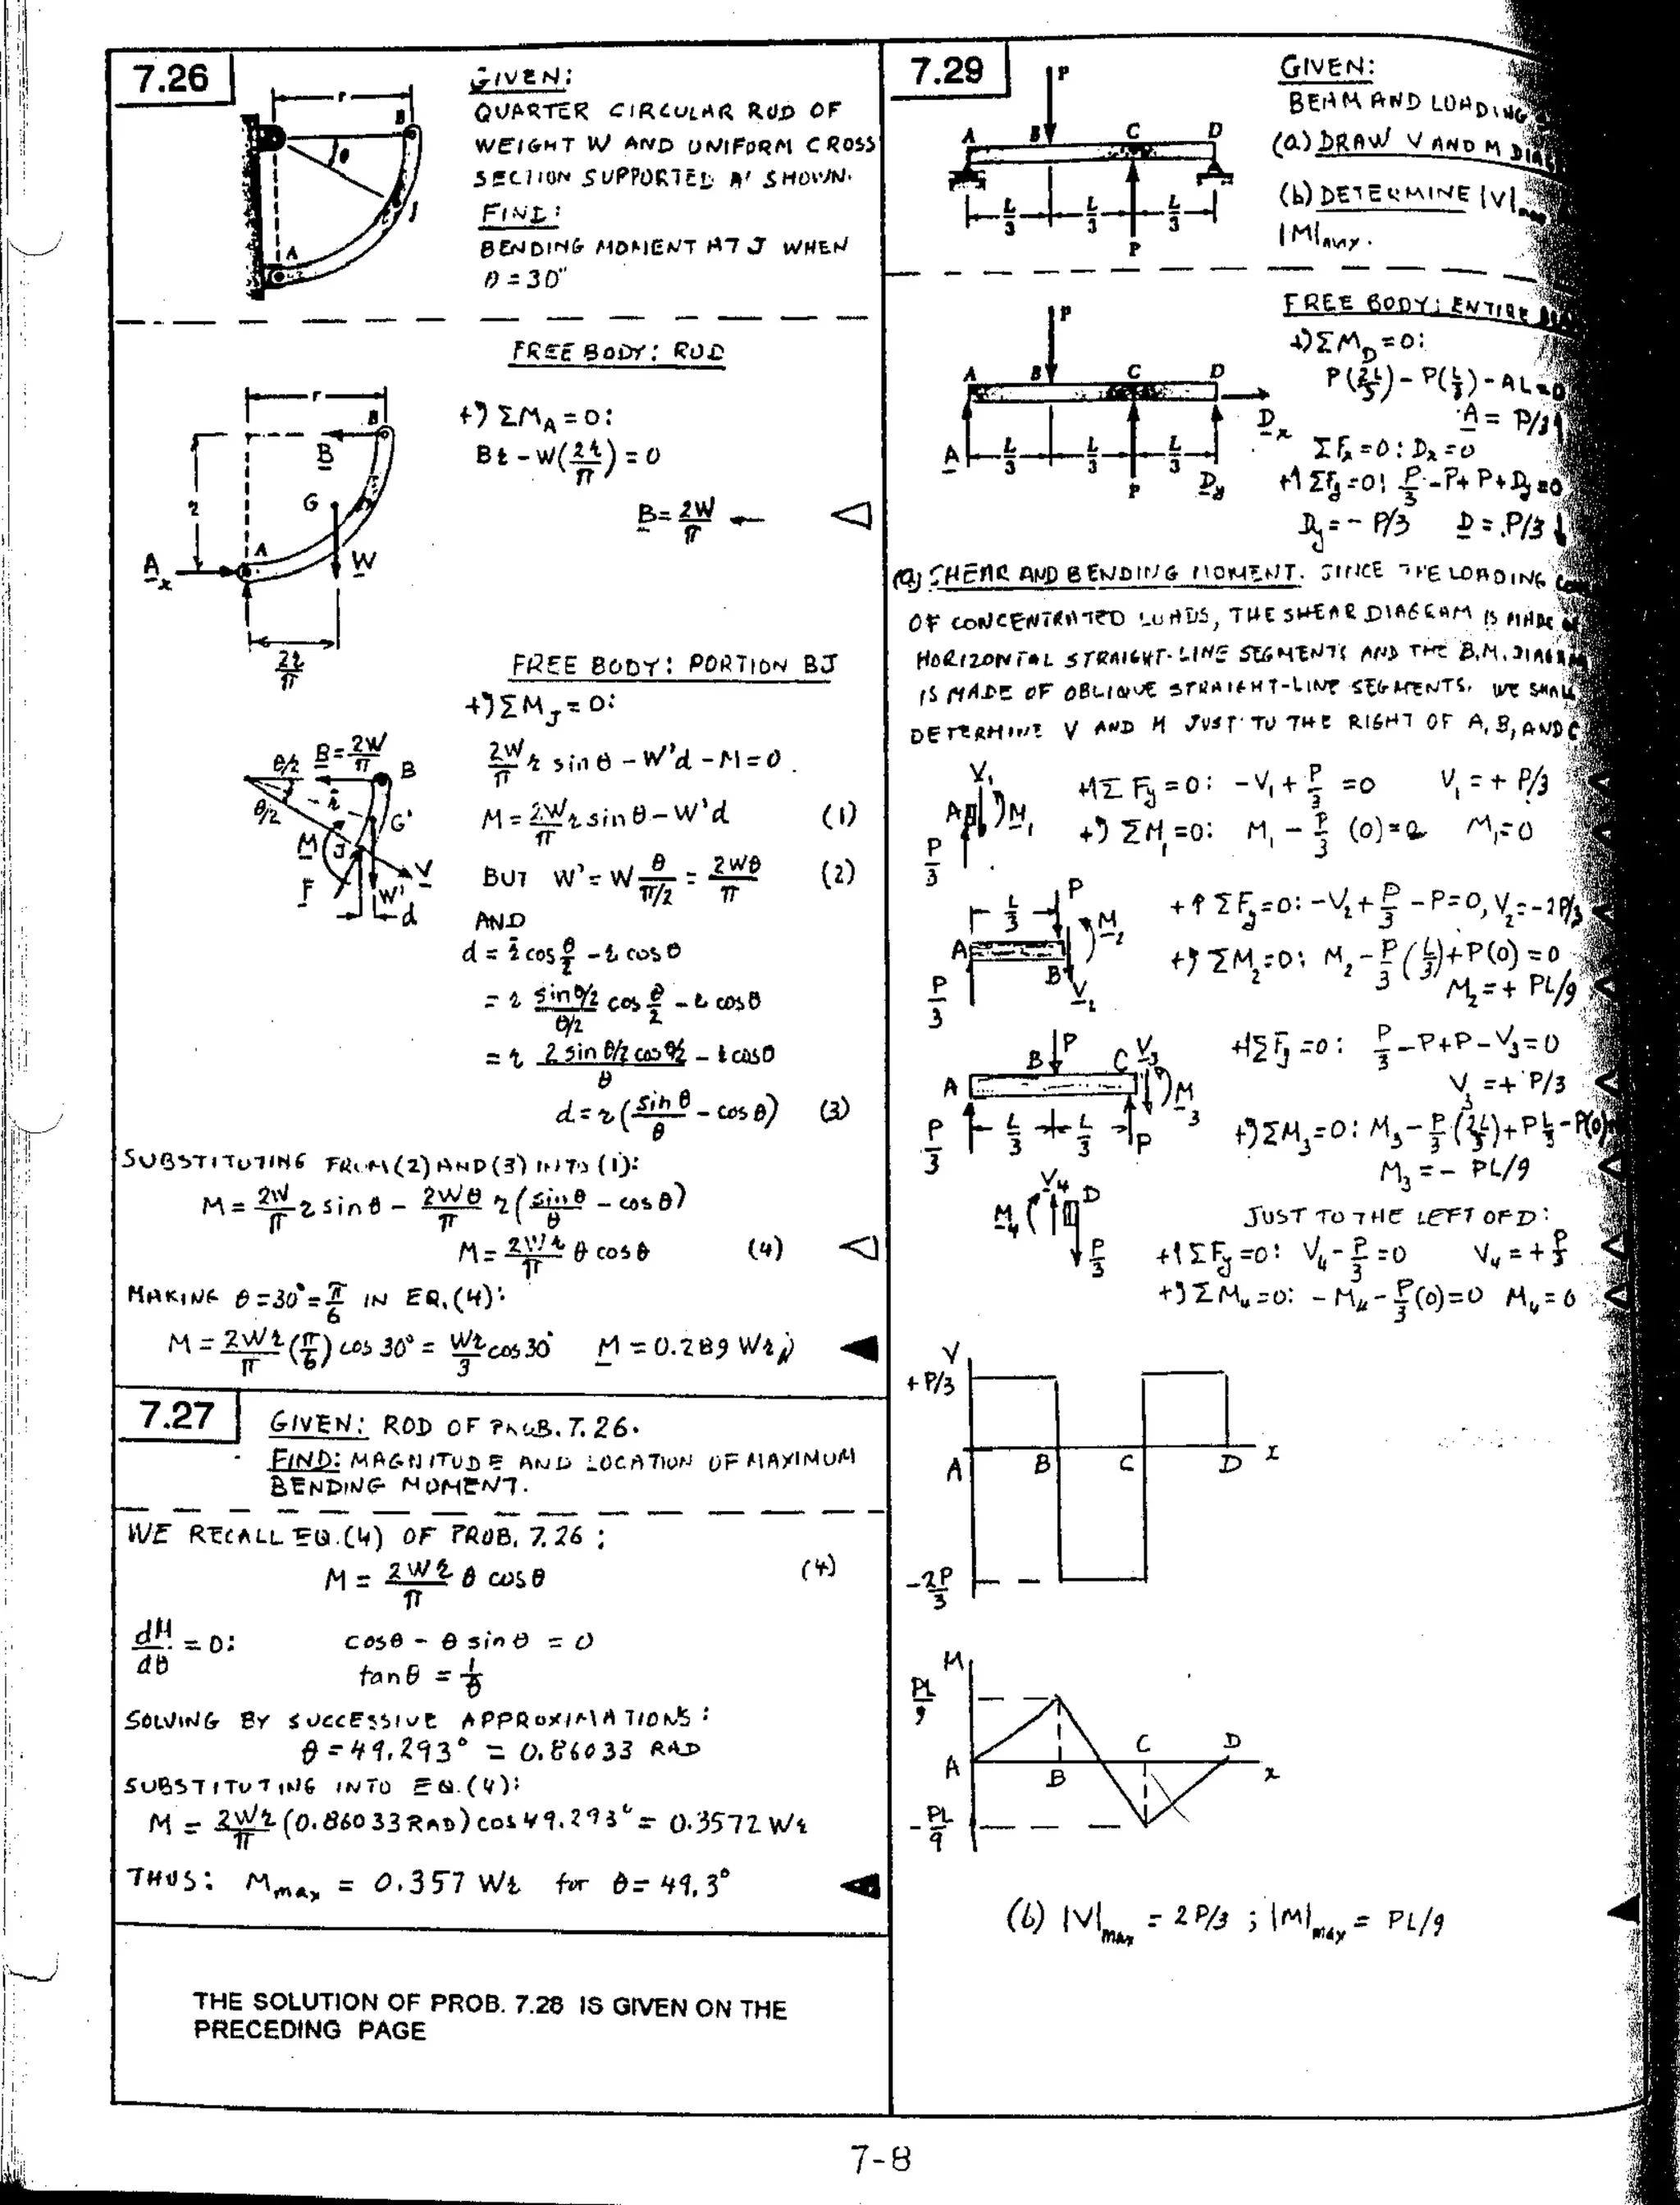 7.26
GIVEN:
QUARTER CIRCULAR ROD OF
WEIGHT W AND UNIFORM CROSS
SECTION SUPPORTED AS SHOWN.
FIND:
BENDING MOMENT AT J WHEN
θ = 30°
r
B
θ
J
A
FREE BODY: ROD
r
B
B
G
r
A
A_x
W
2r/π
+↺ ΣM_A = 0:
Br - W(2r/π) = 0
B = 2W/π ←
FREE BODY: PORTION BJ
+↺ ΣM_J = 0:
2W/π r sin θ - W'd - M = 0
M = 2W/π r sin θ - W'd (1)
BUT W' = W θ/(π/2) = 2Wθ/π (2)
AND
d = r̄ cos θ/2 - r cos θ
= r (sin θ/2)/(θ/2) cos θ/2 - r cos θ
= r (2 sin θ/2 cos θ/2)/θ - r cos θ
d = r (sin θ/θ - cos θ) (3)
θ/2
B = 2W/π
B
r̄
θ/2
G'
M
J
V
F
W'
d
SUBSTITUTING FROM (2) AND (3) INTO (1):
M = 2W/π r sin θ - 2Wθ/π r (sin θ/θ - cos θ)
M = 2Wr/π θ cos θ (4)
MAKING θ = 30° = π/6 IN EQ. (4):
M = 2Wr/π (π/6) cos 30° = Wr/3 cos 30° M = 0.289 Wr
7.27
GIVEN: ROD OF PROB. 7.26.
FIND: MAGNITUDE AND LOCATION OF MAXIMUM
BENDING MOMENT.
WE RECALL EQ. (4) OF PROB. 7.26 :
M = 2Wr/π θ cos θ (4)
dM/dθ = 0: cos θ - θ sin θ = 0
tan θ = 1/θ
SOLVING BY SUCCESSIVE APPROXIMATIONS :
θ = 49.293° = 0.86033 RAD
SUBSTITUTING INTO EQ. (4):
M = 2Wr/π (0.86033 RAD) cos 49.293° = 0.3572 Wr
THUS: M_max = 0.357 Wr for θ = 49.3°
THE SOLUTION OF PROB. 7.28 IS GIVEN ON THE
PRECEDING PAGE
7.29
GIVEN:
BEAM AND LOADING
(a) DRAW V AND M
(b) DETERMINE |V|
|M|max.
P
A B C D
L/3 L/3 L/3
P
FREE BODY: ENTIRE
+↺ ΣM_D = 0:
P(2L/3) - P(L/3) - AL = 0
A = P/3 ↑
ΣF_x = 0: D_x = 0
+↑ ΣF_y = 0: P/3 - P + P + D_y = 0
D_y = - P/3 D = P/3 ↓
P
A B C D
D_x
A L/3 L/3 L/3
P
D_y
(a) SHEAR AND BENDING MOMENT. SINCE THE LOADING
OF CONCENTRATED LOADS, THE SHEAR DIAGRAM IS MADE OF
HORIZONTAL STRAIGHT-LINE SEGMENTS AND THE B.M. DIAGRAM
IS MADE OF OBLIQUE STRAIGHT-LINE SEGMENTS. WE SHALL
DETERMINE V AND M JUST TO THE RIGHT OF A, B, AND C
V₁
A
M₁
P/3
+↑ΣF_y = 0: -V₁ + P/3 = 0 V₁ = + P/3
+↺ ΣM₁ = 0: M₁ - P/3 (0) = 0 M₁ = 0
L/3
P
M₂
A
B
P/3
V₂
+↑ ΣF_y = 0: -V₂ + P/3 - P = 0, V₂ = -2P/3
+↺ ΣM₂ = 0: M₂ - P/3 (L/3) + P(0) = 0
M₂ = + PL/9
P
B
C
V₃
A
M₃
P/3
L/3 L/3
P
+↑ΣF_y = 0: P/3 - P + P - V₃ = 0
V₃ = + P/3
+↺ΣM₃ = 0: M₃ - P/3 (2L/3) + P L/3 - P(0)
M₃ = - PL/9
V₄
D
M₄
P/3
JUST TO THE LEFT OF D:
+↑ΣF_y = 0: V₄ - P/3 = 0 V₄ = + P/3
+↺ΣM₄ = 0: - M₄ - P/3 (0) = 0 M₄ = 0
V
+P/3
A B C D x
-2P/3
M
PL/9
A B C D x
-PL/9
(b) |V|max = 2P/3 ; |M|max = PL/9
7-8